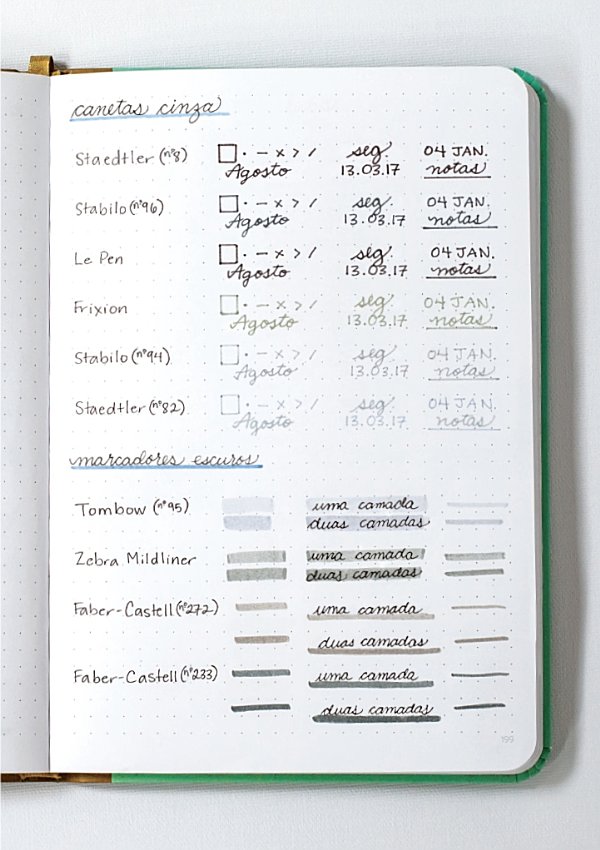 canetas cinza
Staedtler (nº8) □ • – × > / seg. 04 JAN.
Agosto 13.03.17 notas
Stabilo (nº96) □ • – × > / seg. 04 JAN.
Agosto 13.03.17 notas
Le Pen □ • – × > / seg. 04 JAN.
Agosto 13.03.17 notas
Frixion □ • – × > / seg. 04 JAN.
Agosto 13.03.17 notas
Stabilo (nº94) □ • – × > / seg. 04 JAN.
Agosto 13.03.17 notas
Staedtler (nº82) □ • – × > / seg. 04 JAN.
Agosto 13.03.17 notas
marcadores escuros
Tombow (nº95) uma camada
duas camadas
Zebra Mildliner uma camada
duas camadas
Faber-Castell (nº272) uma camada
duas camadas
Faber-Castell (nº233) uma camada
duas camadas
199